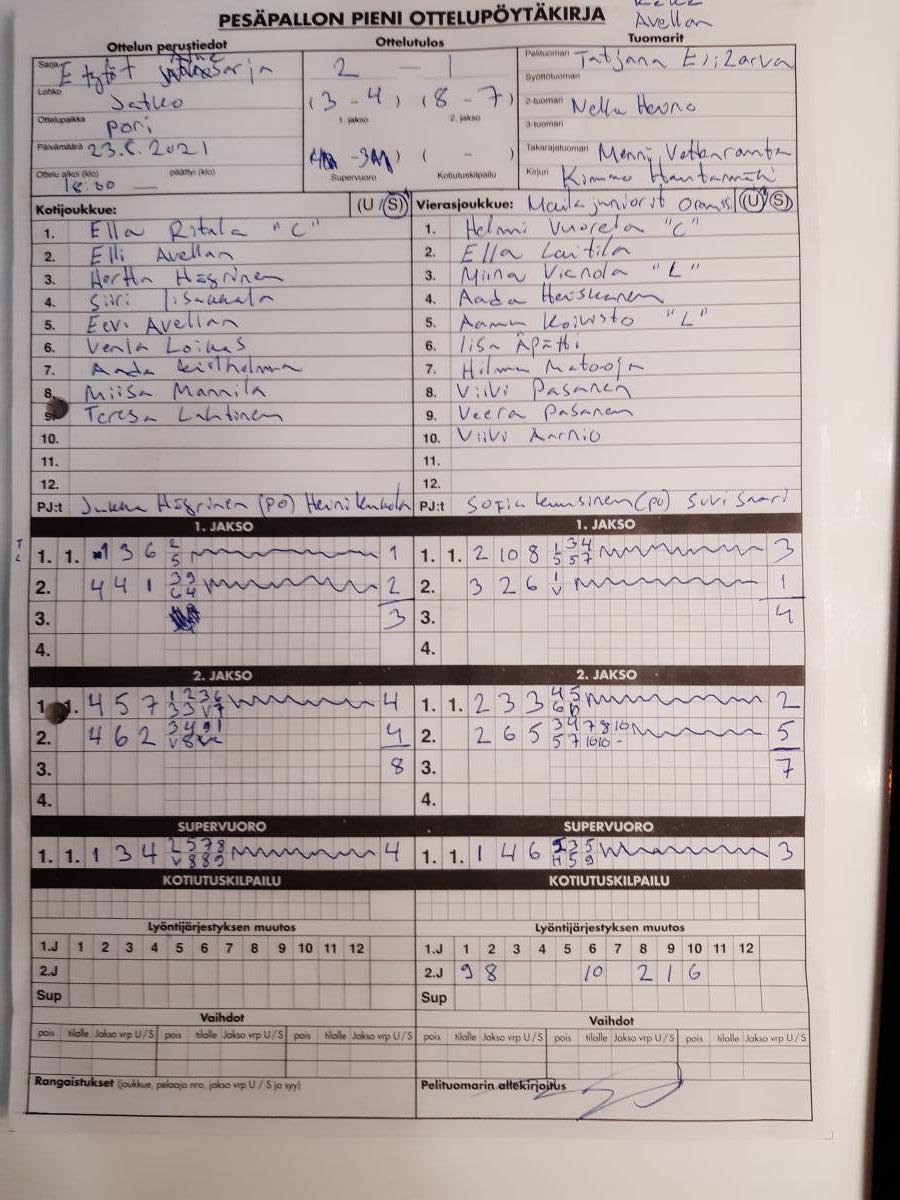 PESÄPALLON PIENI OTTELUPÖYTÄKIRJA
Avellan
Ottelun perustiedot Ottelutulos Tuomarit
Sarja E tytöt
Lohko Jatko
Ottelupaikka Pori
Päivämäärä 23.6.2021
Ottelu alkoi (klo) 18:00 päättyi (klo)
2 - 1
(3-4) (8-7)
1. jakso 2. jakso
( - )
Supervuoro Kotiutuskilpailu
Pelituomari Tatjana Elizarva
Syöttötuomari
2-tuomari Nella
3-tuomari
Takarajatuomari Menni
Kirjuri Kimmo
Kotijoukkue: (U/S)
1. Ella Ritala "C"
2. Elli Avellan
3. Hertta Högrinen
4. Siiri
5. Eevi Avellan
6. Venla Loikas
7. Aada
8. Miisa Mannila
9. Teresa Lahtinen
10.
11.
12.
PJ:t Jukka Högrinen (PO) Heini
Vierasjoukkue: Mailajuniorit Oranssi (U/S)
1. Helmi Vuorela "C"
2. Ella Laitila
3. Miina Vianola "L"
4. Aada Heiskanen
5. Aamu Koivisto "L"
6. Iisa Äpätti
7. Hilma Matooja
8. Viivi Pasanen
9. Veera Pasanen
10. Viivi Aarnio
11.
12.
PJ:t Sofia Kuusinen (PO) Suvi Saari
1. JAKSO 1. JAKSO
1. 1. 1 3 6 2 5 1 1. 1. 2 10 8 1 3 4 5 5 7 3
2. 4 4 1 3 9 6 4 2 2. 3 2 6 1 V 1
3. 3 3. 4
4. 4.
2. JAKSO 2. JAKSO
1. 1. 4 5 7 1 2 3 6 3 3 V 7 4 1. 1. 2 3 3 4 5 6 2
2. 4 6 2 3 4 9 1 V 8 4 2. 2 6 5 3 4 7 8 10 5 7 10 10 - 5
3. 8 3. 7
4. 4.
SUPERVUORO SUPERVUORO
1. 1. 1 3 4 2 5 7 8 V 8 8 9 4 1. 1. 1 4 6 3 5 H 5 9 3
KOTIUTUSKILPAILU KOTIUTUSKILPAILU
Lyöntijärjestyksen muutos Lyöntijärjestyksen muutos
1.J 1 2 3 4 5 6 7 8 9 10 11 12 1.J 1 2 3 4 5 6 7 8 9 10 11 12
2.J 2.J 9 8 10 2 1 6
Sup Sup
Vaihdot Vaihdot
pois tilalle Jakso vrp U/S pois tilalle Jakso vrp U/S pois tilalle Jakso vrp U/S pois tilalle Jakso vrp U/S pois tilalle Jakso vrp U/S pois tilalle Jakso vrp U/S
Rangaistukset (joukkue, pelaaja nro, jakso vrp U / S ja syy) Pelituomarin allekirjoitus